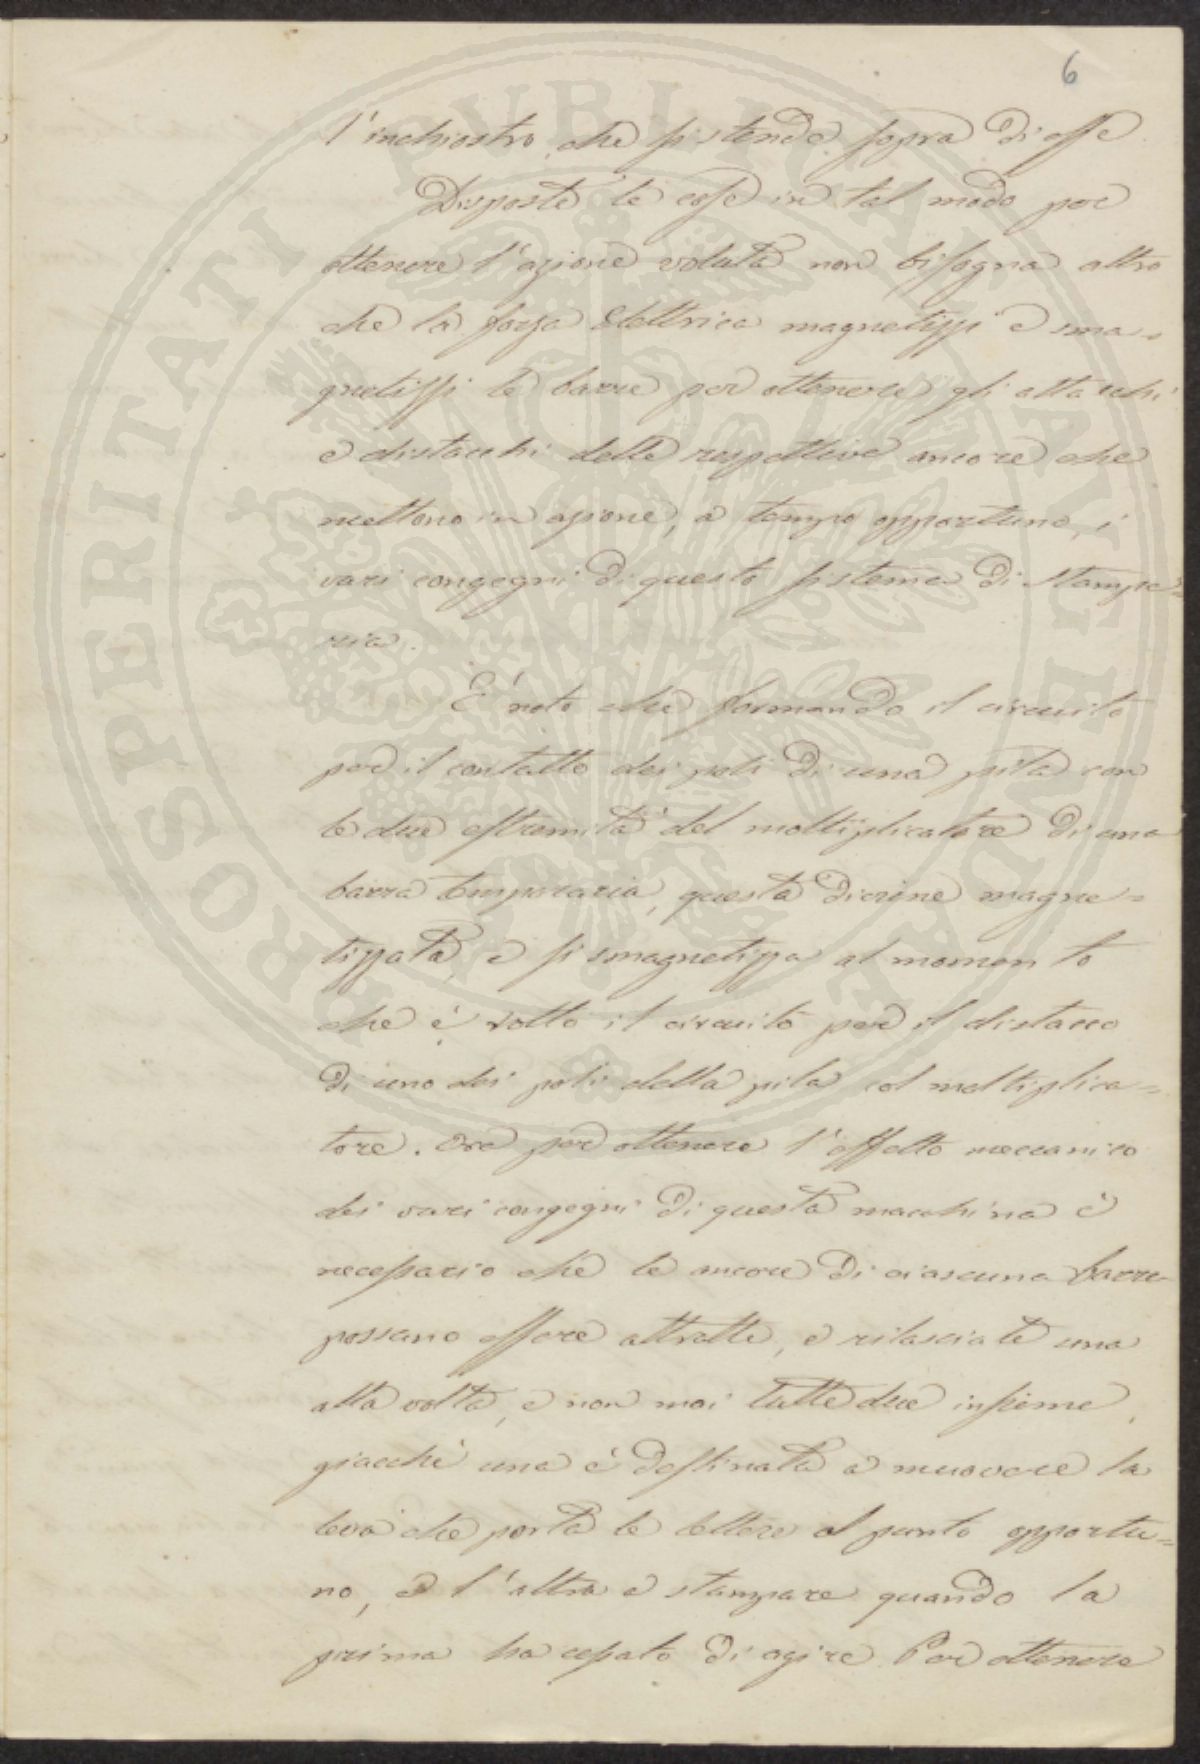 6
l'inchiostro che si stende sopra di esse
Disposte le cose in tal modo per
ottenere l'azione voluta non bisogna altro
che la forza Elettrica magnetizzi e sma=
gnetizzi le barre per ottenere gli attacchi
e distacchi delle respettive ancore che
mettono in azione, a tempo opportuno, i
vari congegni di questo sistema di stampe=
ria.
E' noto che formando il circuito
per il contatto dei poli di una pila con
le due estremità del moltiplicatore di una
barra temporaria, questa diviene magne=
tizzata, e si smagnetizza al momento
che è rotto il circuito per il distacco
di uno dei poli della pila col moltiplica=
tore. Ora per ottenere l'effetto meccanico
dei varii congegni di questa macchina è
necessario che le ancore di ciascuna barra
possano essere attratte, e rilasciate una
alla volta, e non mai tutte due insieme,
giacchè una è destinata a muovere la
leva che porta le lettere al punto opportu=
no, e l'altra a stampare quando la
prima ha cessato di agire. Per ottenere
PROSPERITATI PUBLICAE AUGENDAE